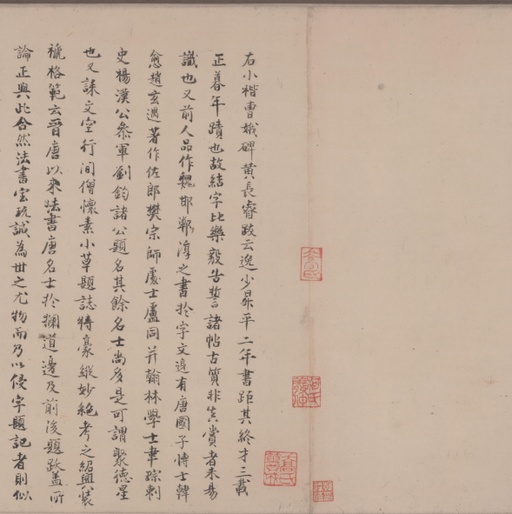 右小楷曹娥碑黄長睿跋云逸少昇平二年書距其終才三載
正暮年蹟也故結字比樂毅告誓諸帖古質非真賞者未易
識也又前人品作魏邯鄲淳之書於字文邊有唐國子博士韓
愈趙玄遇著作佐郎樊宗師處士盧同并翰林學士韋琮刺
史楊漢公叅軍劉鈞諸公題名其餘名士尚多是可謂聚德星
也又諌文空行間僧懷素小草題誌特豪縱妙絶考之紹興裝
褫格範云晉唐以来法書唐名士於攔道邊及前後題跋盖所
論正與此合然法書寔玩誠為世之尤物而乃以侵字題記者則似